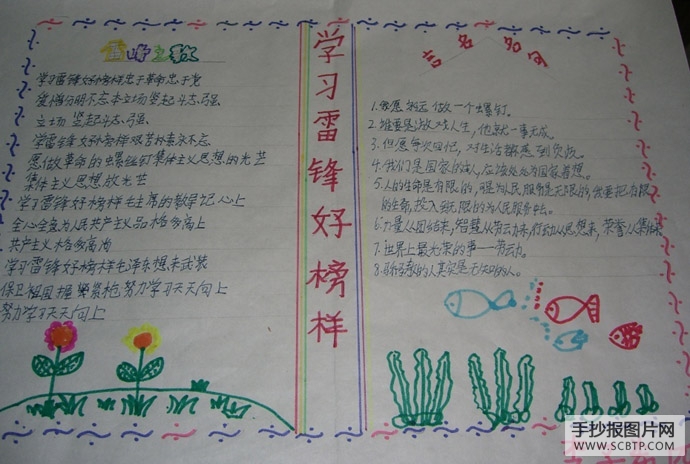 雷锋之歌
学习雷锋好榜样忠于革命忠于党
爱憎分明不忘本立场坚起斗志强
立场坚起斗志强
学雷锋好榜样艰苦朴素永不忘
愿做革命的螺丝钉集体主义思想的光芒
集体主义思想放光芒
学习雷锋好榜样毛主席的教导记心上
全心全意为人民共产主义品格多高上
共产主义格多高尚
学习雷锋好榜样毛泽东想来武装
保卫祖国握紧枪努力学习天天向上
努力学习天天向上
学习雷锋好榜样
言名
1.我愿永远做一个螺钉。
2.谁要是游戏人生,他就一事无成。
3.但愿每次回忆,对生活都感到负疚。
4.我们是国家的主人,应该处处为国家着想。
5.人的生命是有限的,为人民服务是无限的,我要把有限
的生命,投入到无限的为人民服务中去。
6.力量从团结来,智慧从劳动来,行动从思想来,荣誉从集体来
7.世界上最光荣的事—劳动。
8.的人其实是无知的人。
手抄报图片网
WWW.SCBTP.COM